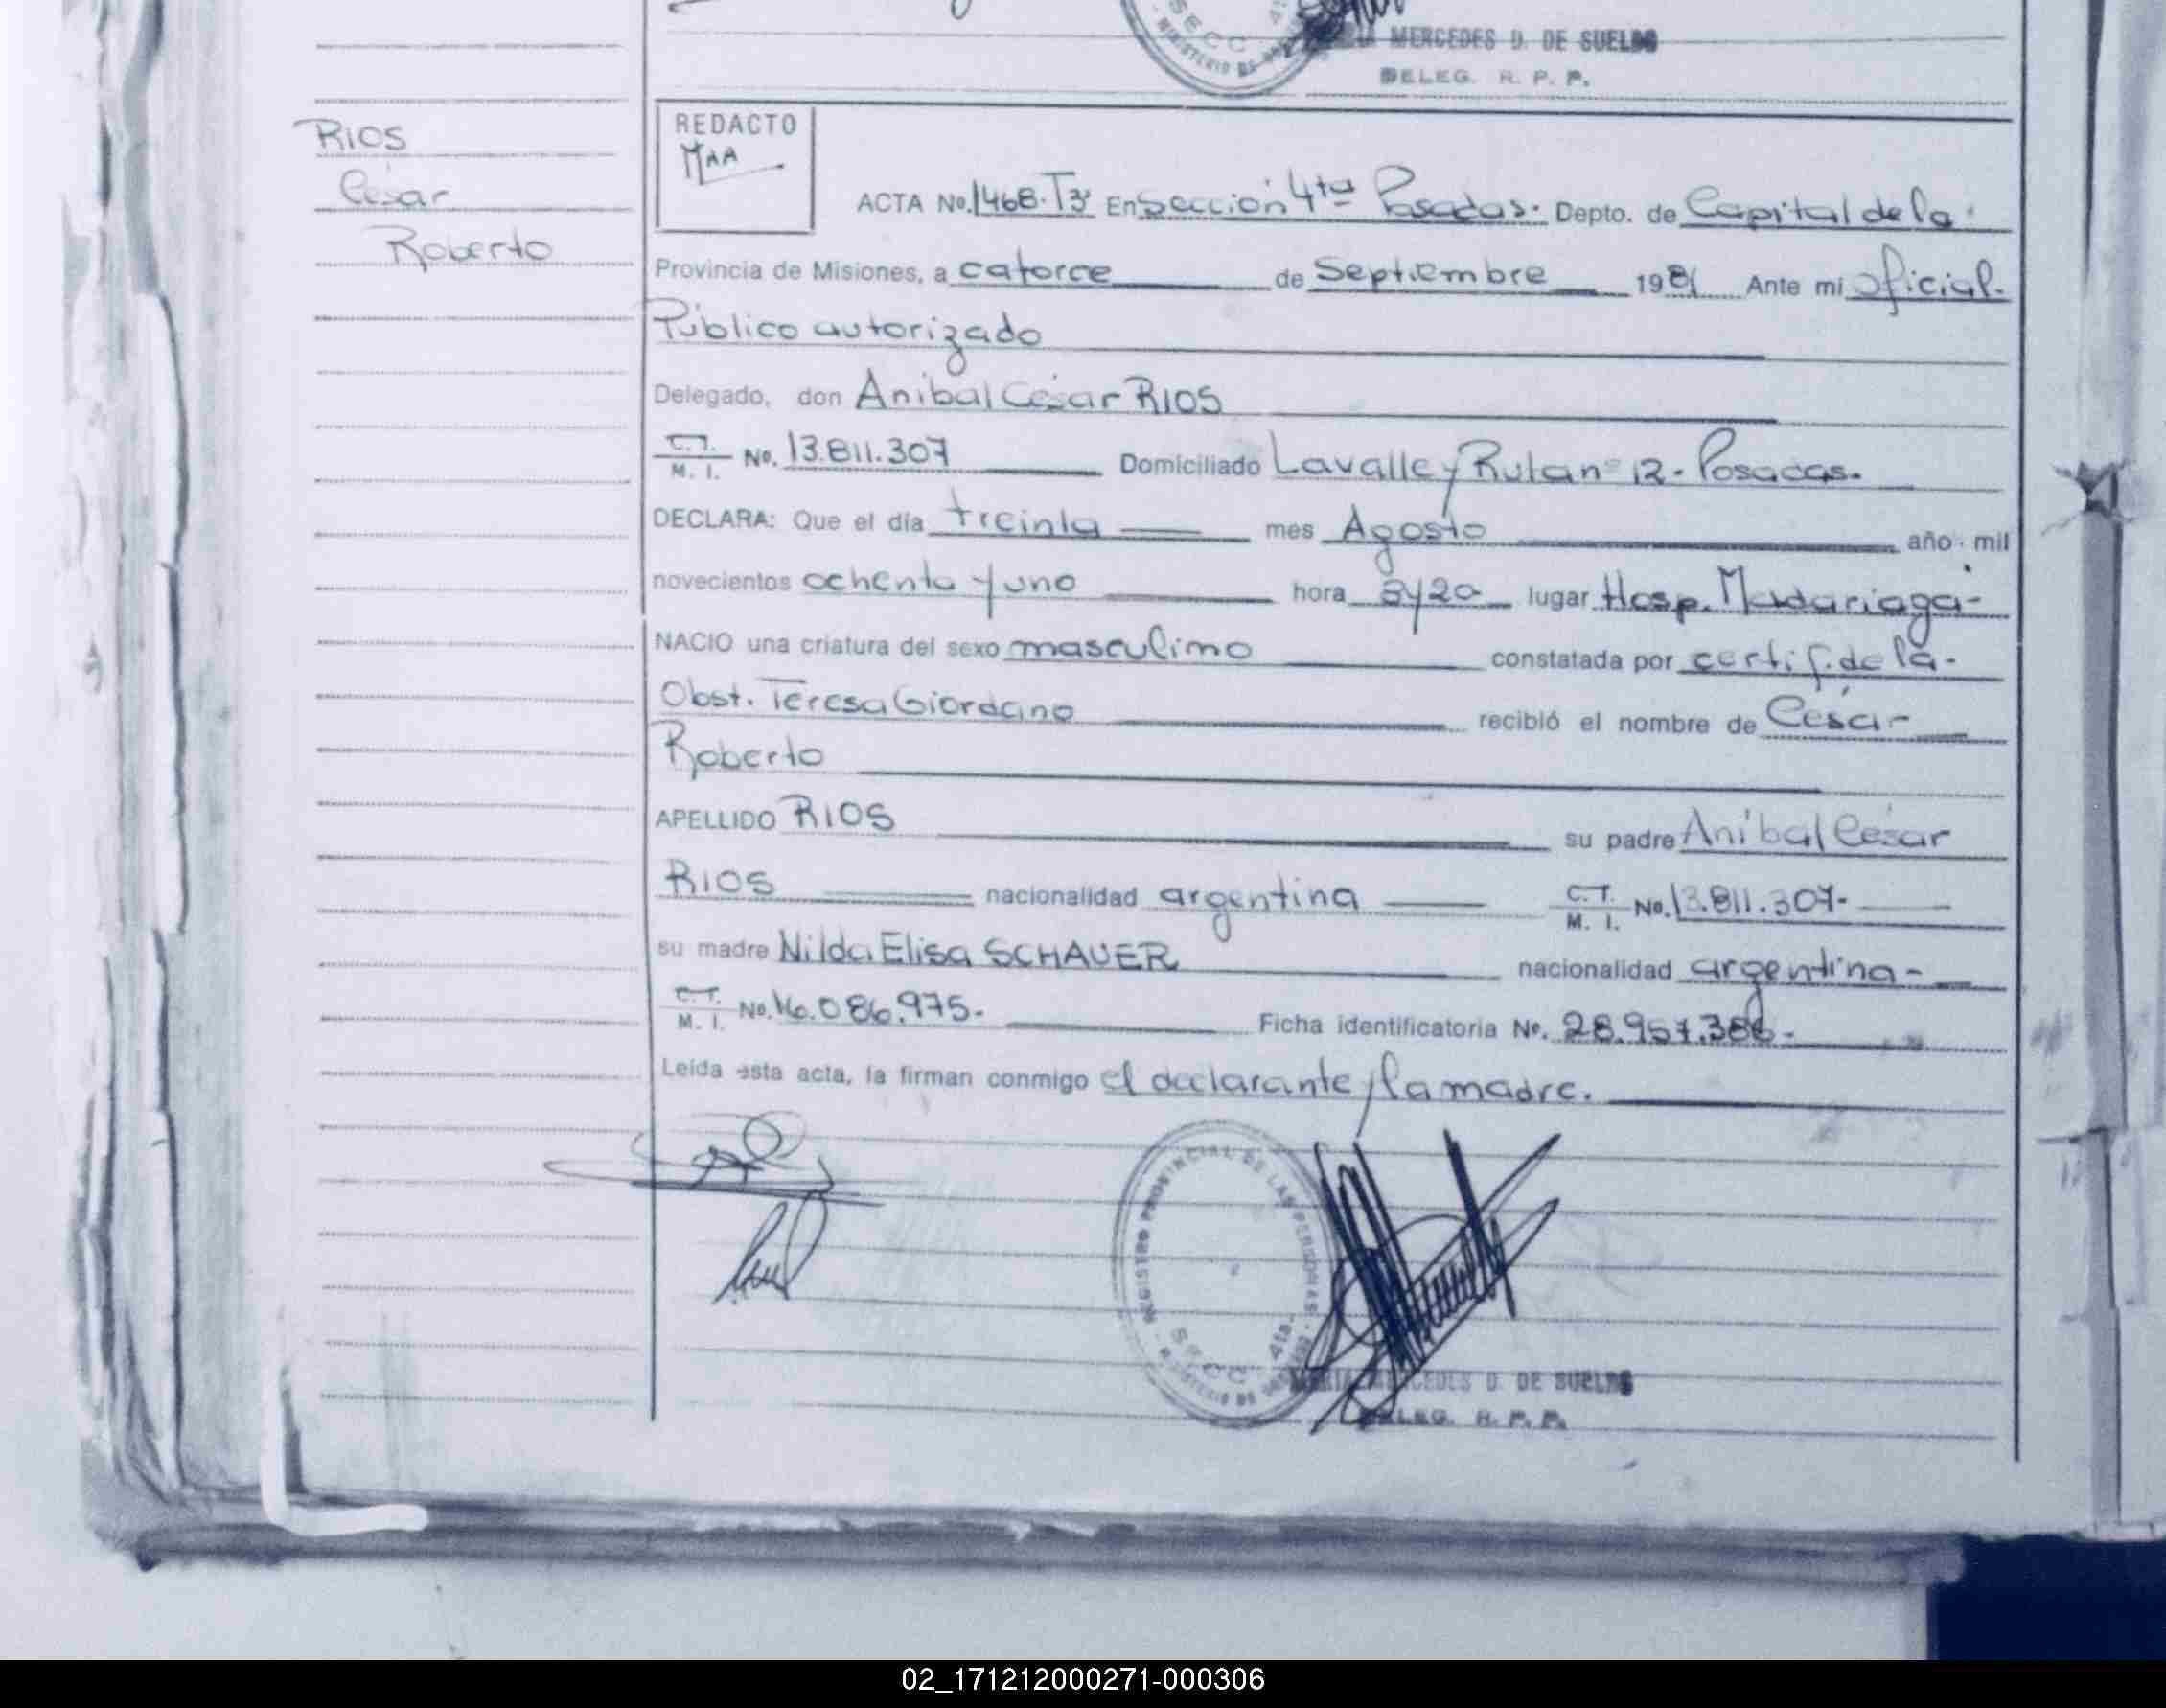 SECC 4ta
MINISTERIO DE
MERCEDES D. DE SUELDO
DELEG. R. P. P.
RIOS
César
Roberto
REDACTO
MAA
ACTA No. 1468.T3º En Sección 4ta Posadas. Depto. de Capital de la
Provincia de Misiones, a catorce de Septiembre 1981 Ante mi oficial
Público autorizado
Delegado, don Anibal César RIOS
C.I. M. I. No. 13.811.307 Domiciliado Lavalle y Ruta nº 12 - Posadas.
DECLARA: Que el día treinta mes Agosto año mil
novecientos ochenta y uno hora 3y20 lugar Hosp. Madariaga-
NACIO una criatura del sexo masculino constatada por certif. de la-
Obst. Teresa Giordano recibió el nombre de César
Roberto
APELLIDO RIOS su padre Anibal César
RIOS nacionalidad argentina C.I. M. I. No. 13.811.307-
su madre Nilda Elisa SCHAUER nacionalidad argentina-
C.I. M. I. No. 16.086.975.- Ficha identificatoria No. 28.957.386-
Leída esta acta, la firman conmigo el declarante y la madre.
REGISTRO PROVINCIAL DE LAS PERSONAS
SECC. 4ta.
MINISTERIO DE
MARIA MERCEDES D. DE SUELDO
DELEG. R. P. P.
02_171212000271-000306